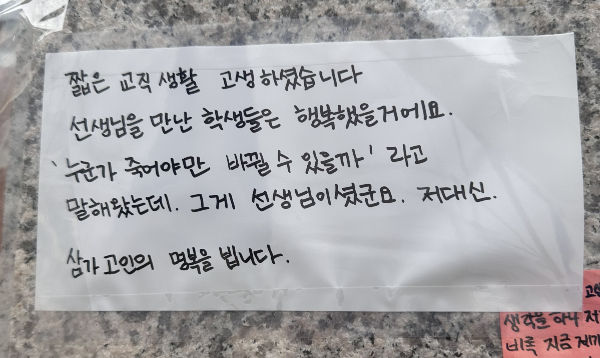 짧은 교직 생활 고생하셨습니다
선생님을 만난 학생들은 행복했을거에요.
'누군가 죽어야만 바뀔 수 있을까' 라고
말해왔는데. 그게 선생님이셨군요. 저대신.
삼가 고인의 명복을 빕니다.
생각을 하나
비록 지금